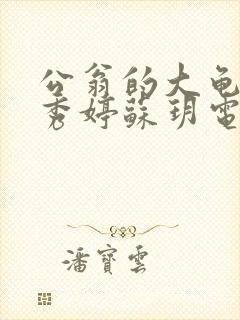 公翁的大龟
秀婷蘇玥電
潘寶雲